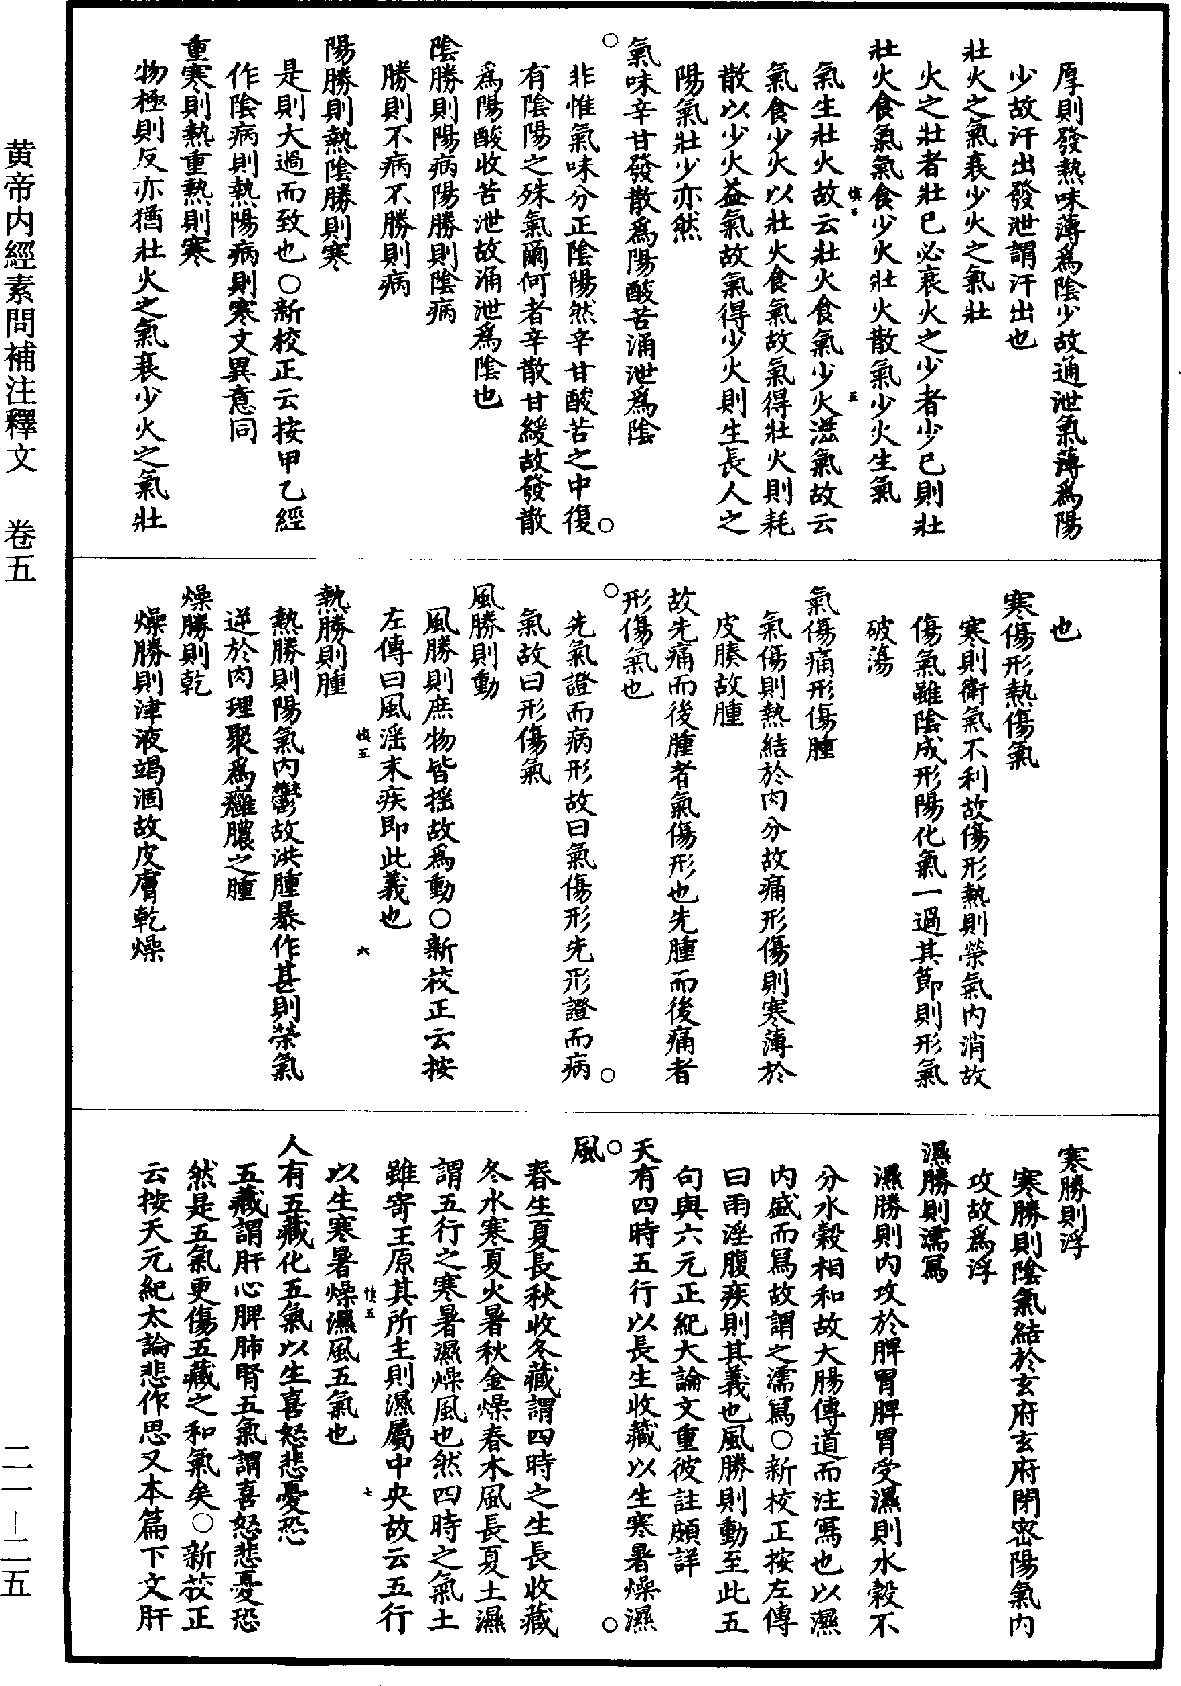 黄帝内經素問補注釋文　卷五
厚則發熱味薄爲陰少故通泄氣薄爲陽
少故汗出發泄謂汗出也
壯火之氣衰少火之氣壯
火之壯者壯已必衰火之少者少已則壯
壯火食氣氣食少火壯火散氣少火生氣
氣生壯火故云壯火食氣少火滋氣故云
氣食少火以壯火食氣故氣得壯火則耗
散以少火益氣故氣得少火則生長人之
陽氣壯少亦然
氣味辛甘發散爲陽酸苦涌泄爲陰
非惟氣味分正陰陽然辛甘酸苦之中復
有陰陽之殊氣爾何者辛散甘緩故發散
爲陽酸收苦泄故涌泄爲陰也
陰勝則陽病陽勝則陰病
勝則不病不勝則病
陽勝則熱陰勝則寒
是則大過而致也○新校正云按甲乙經
作陰病則熱陽病則寒文異意同
重寒則熱重熱則寒
物極則反亦猶壯火之氣衰少火之氣壯
也
寒傷形熱傷氣
寒則衛氣不利故傷形熱則榮氣内消故
傷氣雖陰成形陽化氣一過其節則形氣
破蕩
氣傷痛形傷腫
氣傷則熱結於肉分故痛形傷則寒薄於
皮腠故腫
故先痛而後腫者氣傷形也先腫而後痛者
形傷氣也
先氣證而病形故曰氣傷形先形證而病
氣故曰形傷氣
風勝則動
風勝則庶物皆揺故爲動○新校正云按
左傳曰風淫末疾即此義也
熱勝則腫
熱勝則陽氣内鬱故洪腫暴作甚則榮氣
逆於肉理聚爲癰膿之腫
燥勝則乾
燥勝則津液竭涸故皮膚乾燥
寒勝則浮
寒勝則陰氣結於玄府玄府閉密陽氣内
攻故爲浮
濕勝則濡寫
濕勝則内攻於脾胃脾胃受濕則水穀不
分水穀相和故大腸傳道而注寫也以濕
内盛而寫故謂之濡寫○新校正按左傳
曰雨淫腹疾則其義也風勝則動至此五
句與六元正紀大論文重彼註頗詳
天有四時五行以長生收藏以生寒暑燥濕
風
春生夏長秋收冬藏謂四時之生長收藏
冬水寒夏火暑秋金燥春木風長夏土濕
謂五行之寒暑濕燥風也然四時之氣土
雖寄王原其所主則濕屬中央故云五行
以生寒暑燥濕風五氣也
人有五藏化五氣以生喜怒悲憂恐
五藏謂肝心脾肺腎五氣謂喜怒悲憂恐
然是五氣更傷五藏之和氣矣○新校正
云按天元紀太論悲作思又本篇下文肝
二一－二五